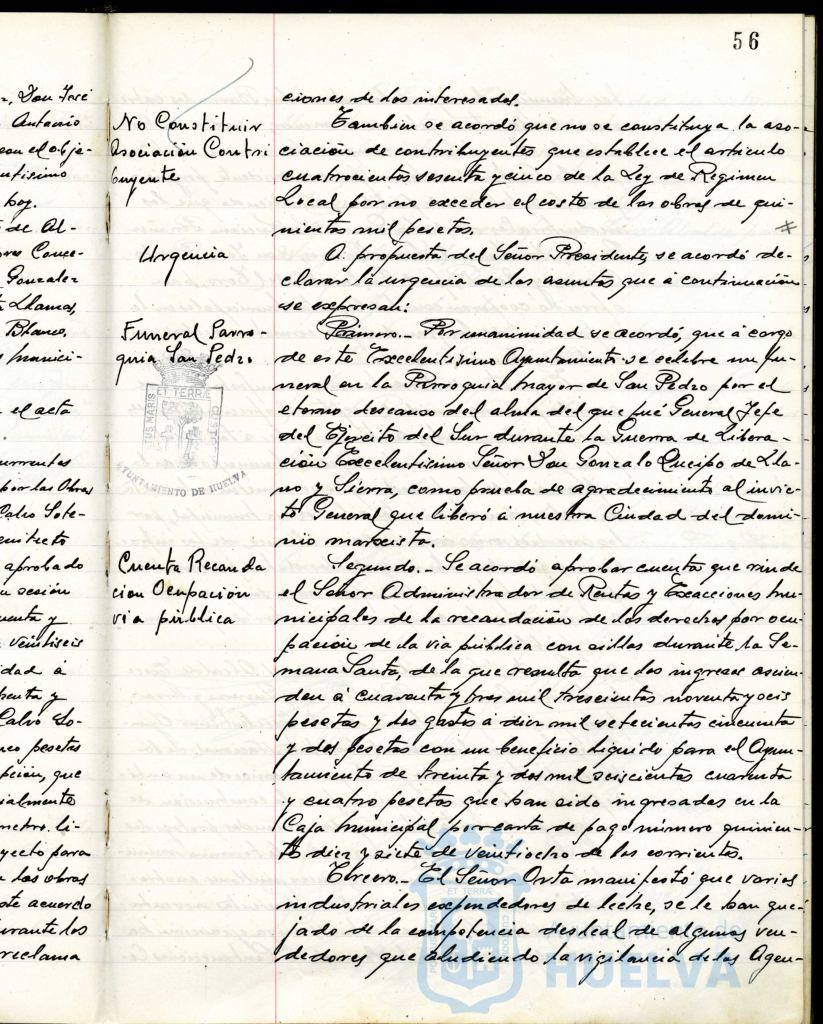 56
, Don José
Antonio
con el obje-
ntisimo
hoy.
de Al-
Conce-
Gonzalez
Llamas,
Blanco,
munici-
el acta
currentes
por las Obras
Calvo Sote-
aprobado
sesión
uenta y
veintiseis
idad á
y
Calvo So-
pesetas
que
ialmente
metro li-
yecto para
las obras
este acuerdo
urante los
reclama
No Constituir
Asociación Contri
buyente
Urgencia
Funeral Parro-
quia San Pedro
ET TERRÆ
AYUNTAMIENTO DE HUELVA
Cuenta Recauda
cion Ocupación
via pública
ciones de los interesados.
Tambien se acordó que no se constituya la aso-
ciación de contribuyentes que establece el articulo
cuatrocientos sesenta y cinco de la Ley de Regimen
Local por no exceder el costo de las obras de qui-
nientas mil pesetas.
A propuesta del Señor Presidente, se acordó de-
clarar la urgencia de los asuntos que á continuación
se expresan:
Primero.- Por unanimidad se acordó, que á cargo
de este Excelentisimo Ayuntamiento se celebre un fu-
neral en la Parroquia mayor de San Pedro por el
eterno descanso del alma del que fué General Jefe
del Ejercito del Sur durante la Guerra de Libera-
ción Excelentisimo Señor Don Gonzalo Queipo de Lla-
no y Sierra, como prueba de agradecimiento al invic-
to General que liberó á nuestra Ciudad del domi-
nio marxista.
Segundo.- Se acordó aprobar cuenta que rinde
el Señor Administrador de Rentas y Exacciones Mu-
nicipales de la recaudación de los derechos por ocu-
pación de la via pública con sillas durante la Se-
mana Santa, de la que resulta que los ingresos ascien-
den á cuarenta y tres mil trescientas noventa y seis
pesetas y los gastos á diez mil setecientas cincuenta
y dos pesetas con un beneficio liquido para el Ayun-
tamiento de treinta y dos mil seiscientas cuarenta
y cuatro pesetas que han sido ingresadas en la
Caja Municipal por carta de pago número quinien-
tos diez y siete de veintiocho de los corrientes.
Tercero.- El Señor Orta manifestó que varios
industriales expendedores de leche, se le han que-
jado de la competencia desleal de algunos ven-
dedores que aludiendo la vigilancia de los Agen-
ET TERRÆ
Ayuntamiento de
HUELVA